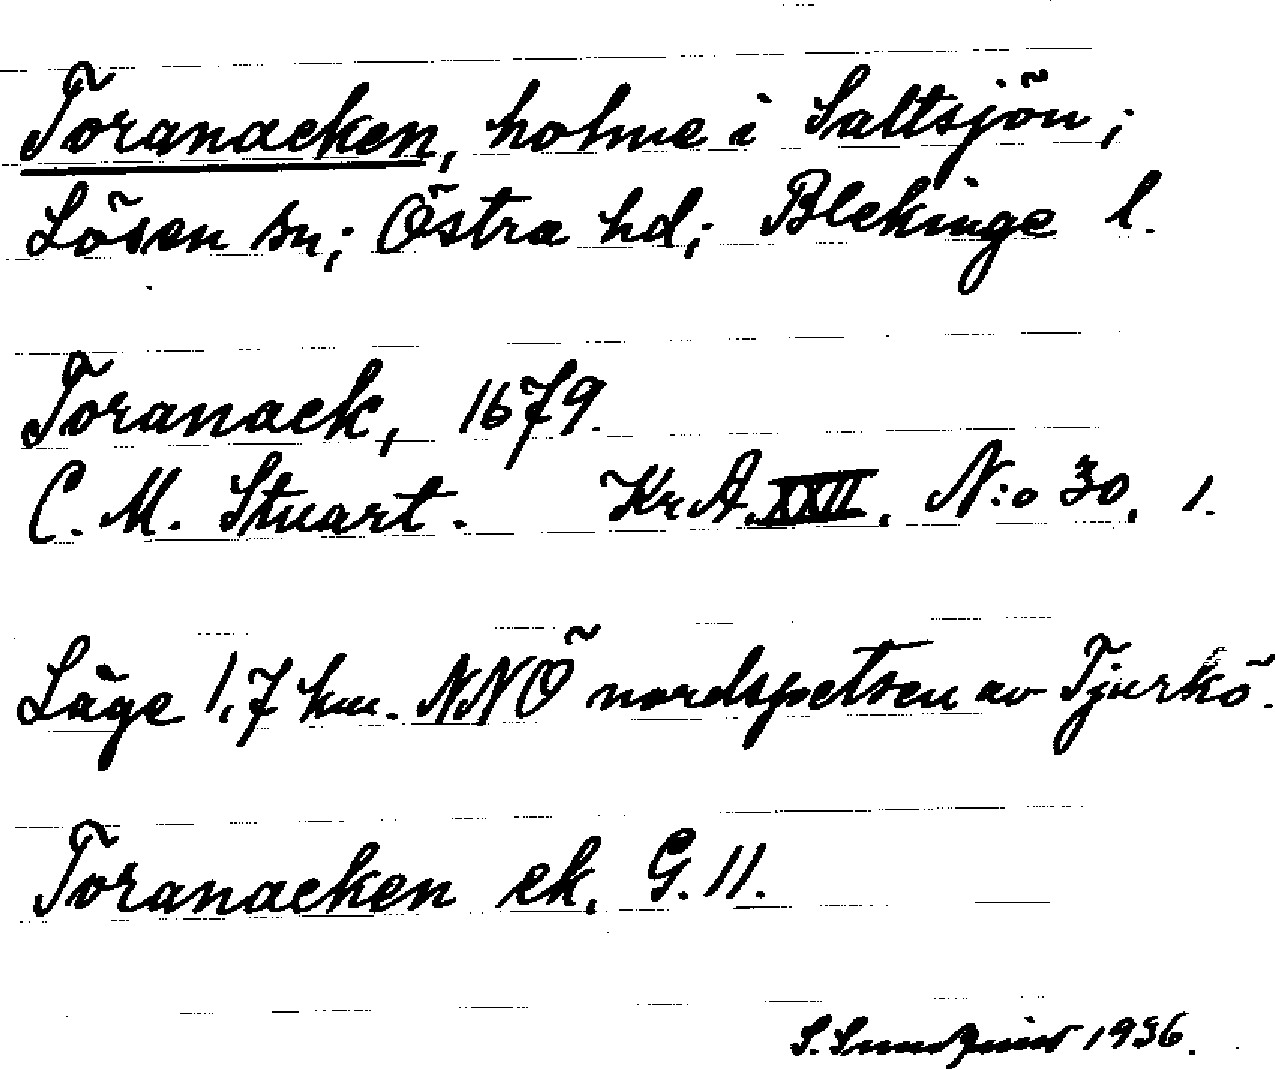 Toranacken, holme i Saltsjön;
Lösen sn; Östra hd; Blekinge l.
Toranack, 1679.
C. M. Stuart. Kr A. XXII. N:o 30. 1.
Läge 1,7 km. NNÖ nordspetsen av Tjurkö.
Toranacken ek. G. 11.
S. Sundquist 1936.